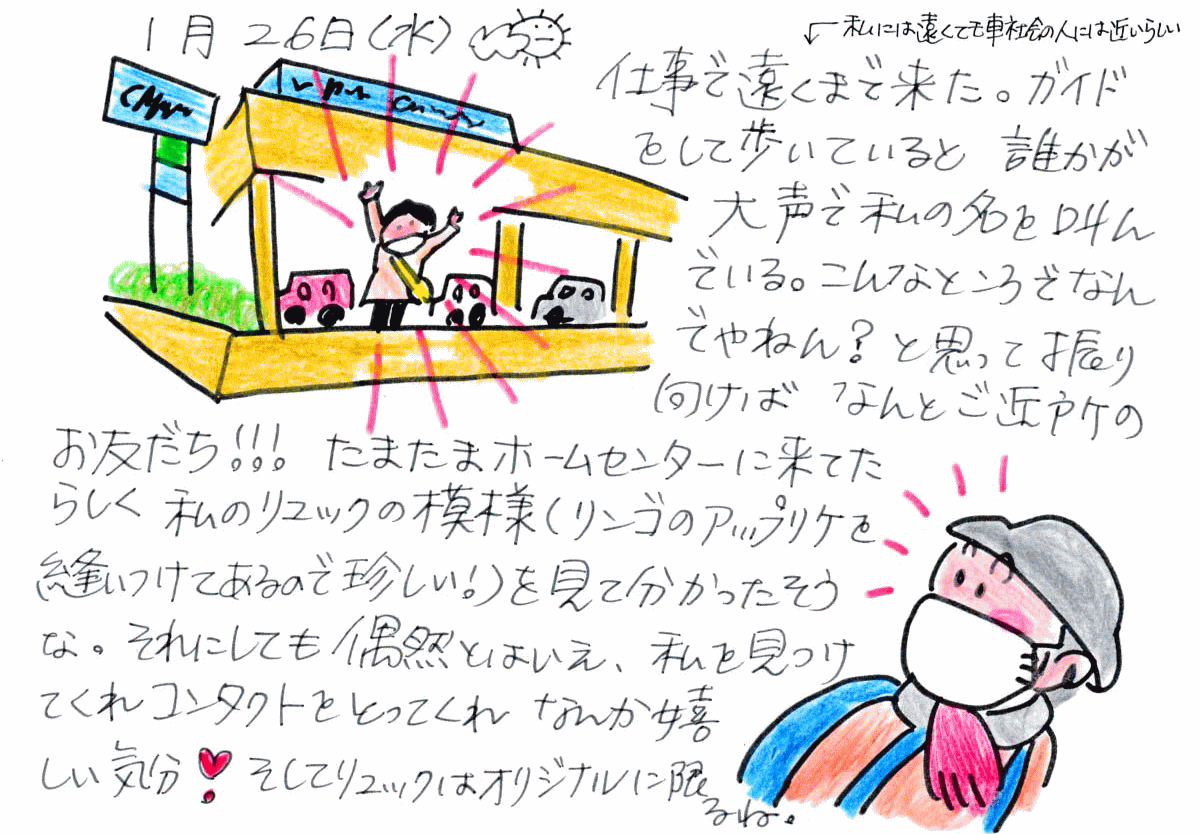 1月26日(水)
←私には遠くても車社会の人には近いらしい
仕事で遠くまで来た。ガイド
をして歩いていると 誰かが
大声で私の名を叫ん
でいる。こんなところでなん
でやねん?と思って振り
向けば なんとご近所の
お友だち!!! たまたまホームセンターに来てた
らしく 私のリュックの模様(リンゴのアップリケを
縫いつけてあるので珍しい!)を見て分かったそう
な。それにしても偶然とはいえ、私を見つけ
てくれコンタクトをとってくれ なんか嬉
しい気分 そしてリュックはオリジナルに限
るね。